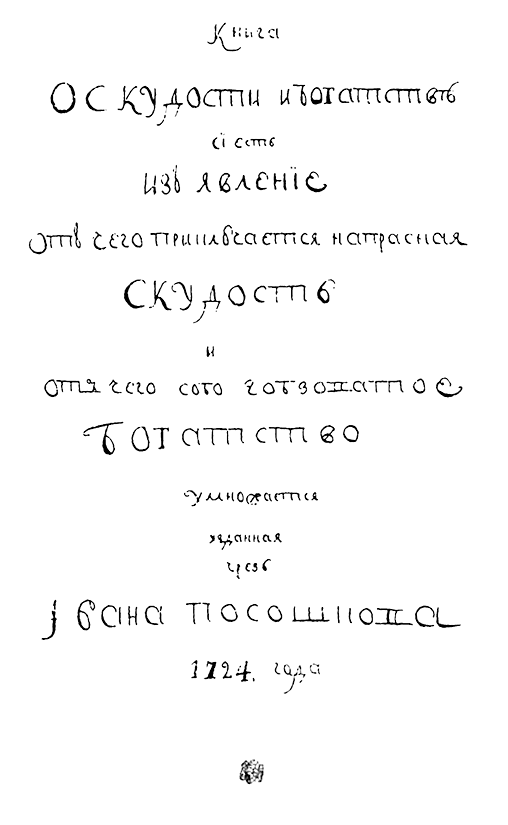 Книга
О СКУДОСТИ и БОГАТСТВѢ
сі есть
изъявленіе
отъ чего приключается напрасная
СКУДОСТЬ
и
отъ чего
БОГАТСТВО
умножается
изданная
чрезъ
Івана Посошкова
1724. года